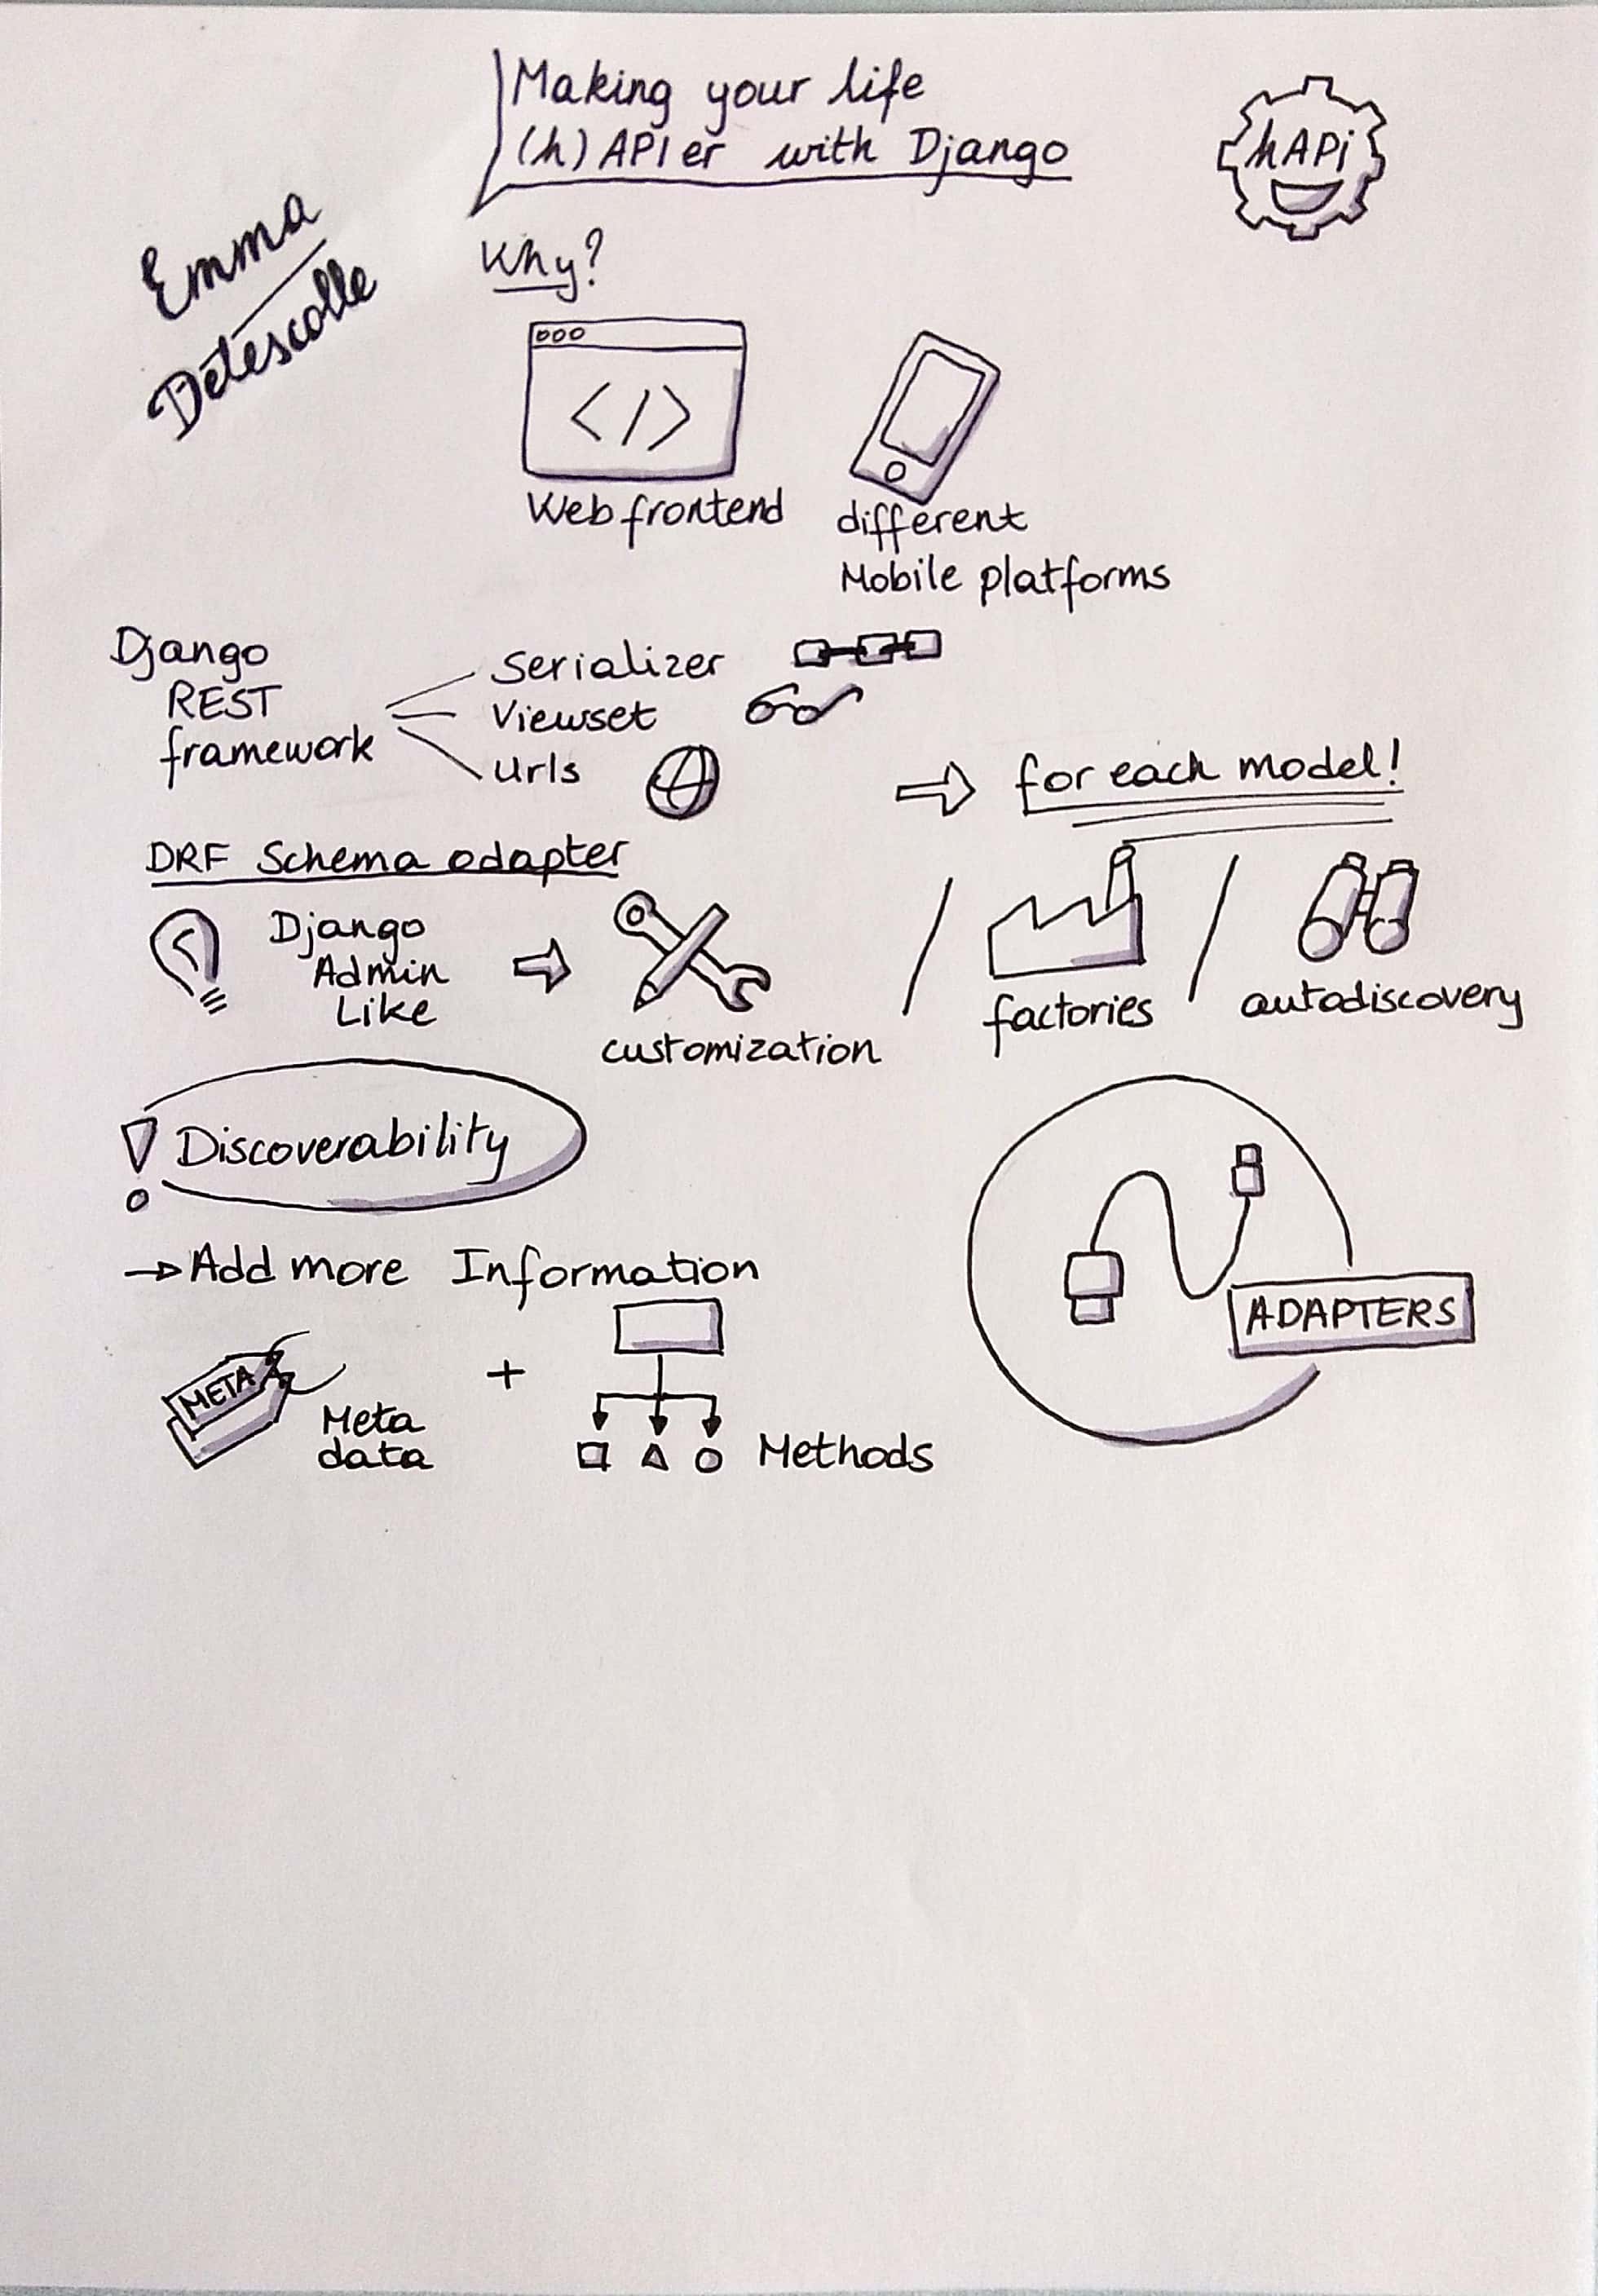 Making your life
(h)APIer with Django
hAPi
Emma
Detescolle
Why?
</>
Web frontend
different
Mobile platforms
Django
REST
framework
Serializer
Viewset
Urls
for each model!
DRF Schema adapter
Django
Admin
Like
customization
factories
autodiscovery
! Discoverability
→ Add more Information
META
Meta
data
+
Methods
ADAPTERS